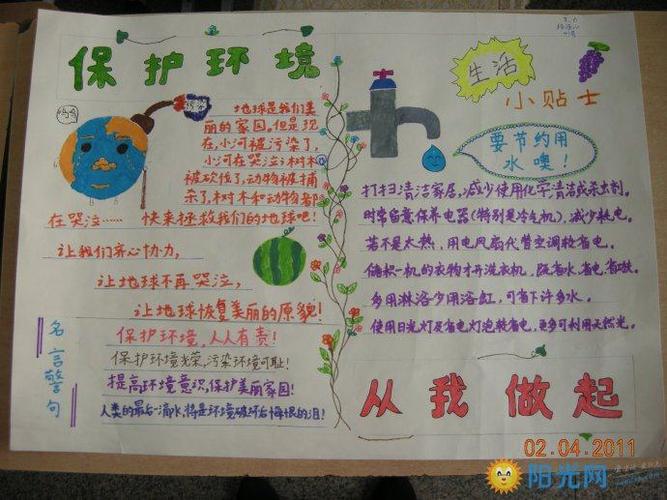 保护环境
呜呜
地球是我们美
丽的家园。但是现
在,小河被污染了,
小河在哭泣;树木
被砍伐了,动物被捕
杀了,树木和动物都
在哭泣…… 快来拯救我们的地球吧!
让我们齐心协力,
让地球不再哭泣,
让地球恢复美丽的原貌!
名言警句
保护环境,人人有责!
保护环境光荣,污染环境可耻!
提高环境意识,保护美丽家园!
人类的最后一滴水,将是环境破坏后悔恨的泪!
生活
小贴士
要节约用
水噢!
打扫清洁家居,减少使用化学清洁或杀虫剂。
时常留意保养电器(特别是冷气机),减少耗电。
若不是太热,用电风扇代替空调较省电。
储积一机的衣物才开洗衣机,既省水、省电、省时。
多用淋浴少用浴缸,可省下许多水。
使用日光灯及省电灯泡较省电,更多可利用天然光。
从我做起
02.04.2011
阳光网